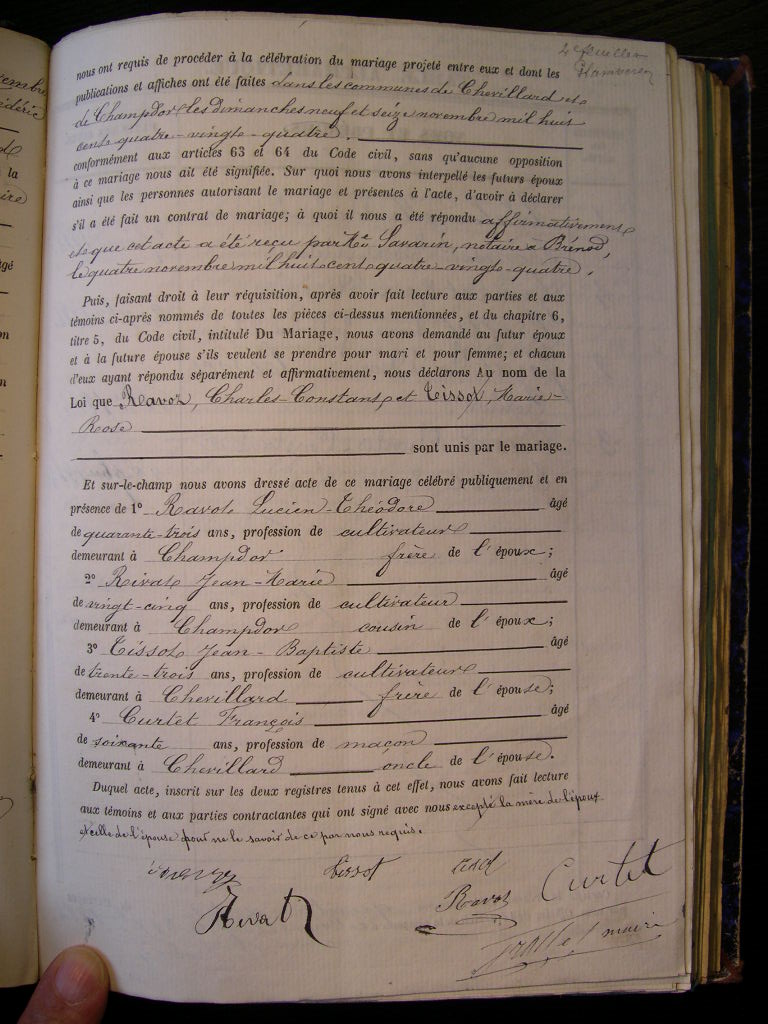 2e feuillet
nous ont requis de procéder à la célébration du mariage projeté entre eux et dont les
publications et affiches ont été faites dans les communes de Chevillard et
de Champdor les dimanches neuf et seize novembre mil huit
cent quatre-vingt-quatre.
conformément aux articles 63 et 64 du Code civil, sans qu'aucune opposition
à ce mariage nous ait été signifiée. Sur quoi nous avons interpellé les futurs époux
ainsi que les personnes autorisant le mariage et présentes à l'acte, d'avoir à déclarer
s'il a été fait un contrat de mariage; à quoi il nous a été répondu affirmativement
et que cet acte a été reçu par Me Savarin, notaire à Brénod,
le quatre novembre mil huit cent quatre-vingt-quatre.
Puis, faisant droit à leur réquisition, après avoir fait lecture aux parties et aux
témoins ci-après nommés de toutes les pièces ci-dessus mentionnées, et du chapitre 6,
titre 5, du Code civil, intitulé Du Mariage, nous avons demandé au futur époux
et à la future épouse s'ils veulent se prendre pour mari et pour femme; et chacun
d'eux ayant répondu séparément et affirmativement, nous déclarons Au nom de la
Loi que Ravot, Charles-Constant, et Tissot, Marie-
Rose
sont unis par le mariage.
Et sur-le-champ nous avons dressé acte de ce mariage célébré publiquement et en
présence de 1° Ravot Lucien-Théodore âgé
de quarante-trois ans, profession de cultivateur
demeurant à Champdor frère de l'époux;
2° Rivat Jean-Marie âgé
de vingt-cinq ans, profession de cultivateur
demeurant à Champdor cousin de l'époux;
3° Tissot Jean-Baptiste âgé
de trente-trois ans, profession de cultivateur
demeurant à Chevillard frère de l'épouse;
4° Curtet François âgé
de soixante ans, profession de maçon
demeurant à Chevillard oncle de l'épouse.
Duquel acte, inscrit sur les deux registres tenus à cet effet, nous avons fait lecture
aux témoins et aux parties contractantes qui ont signé avec nous excepté la mère de l'époux
et celle de l'épouse pour ne le savoir de ce par nous requis.
Tissot
Curtet
Rivat
Ravot
maire